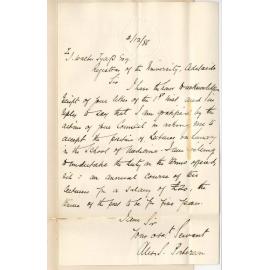 4/12/85
J. Walter Tyas Esq
Registrar of the University, Adelaide
Sir
I have the honor to acknowledge
receipt of your letter of the 1st inst and in
reply to say that I am gratified by the
action of your Council in asking me to
accept the position of Lecturer on
in the School of Medicine. I am willing
to undertake the duty on the terms offered,
viz: an annual course of
lectures for a salary of the
terms of the post to be for four years.
I am Sir
Your obdt Servant
Alex. S. Paterson